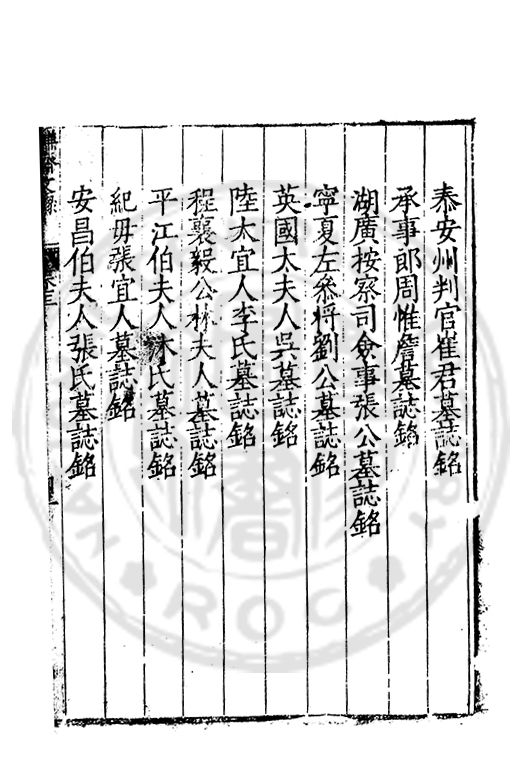 泰安州判官崔君墓誌銘
承事郎周惟詹墓誌銘
湖廣按察司僉事張公墓誌銘
寧夏左叅將劉公墓誌銘
英國太夫人吳墓誌銘
陸太宜人李氏墓誌銘
程襄毅公林夫人墓誌銘
平江伯夫人林氏墓誌銘
紀毋張宜人墓誌銘
安昌伯夫人張氏墓誌銘
文錄
卷三